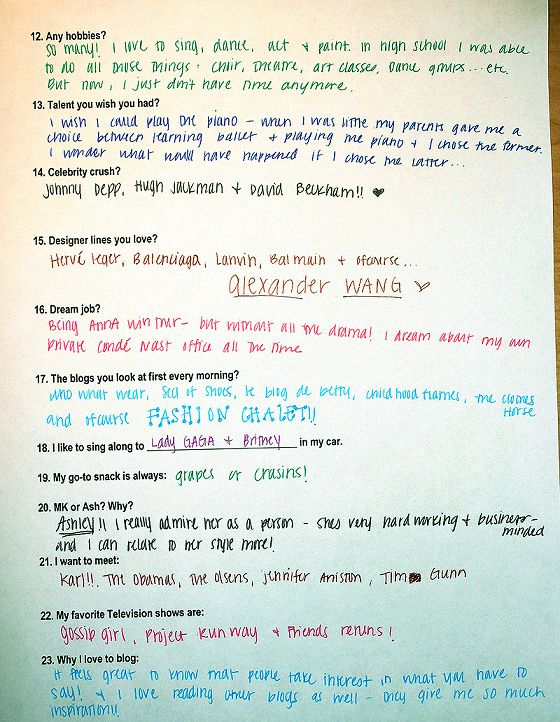 12. Any hobbies?
So many! I love to sing, dance, act + paint. In high school I was able
to do all those things: choir, theatre, art classes, dance groups... etc.
But now, I just don't have time anymore.
13. Talent you wish you had?
I wish I could play the piano - when I was little my parents gave me a
choice between learning ballet + playing the piano + I chose the former.
I wonder what would have happened if I chose the latter...
14. Celebrity crush?
Johnny Depp, Hugh Jackman + David Beckham!! ♥
15. Designer lines you love?
Hervé Leger, Balenciaga, Lanvin, Balmain + ofcourse...
alexander WANG ♡
16. Dream job?
Being Anna Wintour - but without all the drama! I dream about my own
private Condé Nast office all the time
17. The blogs you look at first every morning?
who what wear, sea of shoes, le blog de betty, childhood flames, the clothes
horse
and ofcourse FASHION CHALET!!
18. I like to sing along to Lady GAGA + Britney in my car.
19. My go-to snack is always: grapes or craisins!
20. MK or Ash? Why?
Ashley!! I really admire her as a person - shes very hard working + business-
minded
and I can relate to her style more!
21. I want to meet:
Karl!!, The Obamas, The Olsens, Jennifer Aniston, Tim Gunn
22. My favorite Television shows are:
gossip girl, Project Runway + Friends reruns!
23. Why I love to blog:
It feels great to know that people take interest in what you have to
say! + I love reading other blogs as well - they give me so much
inspiration!!